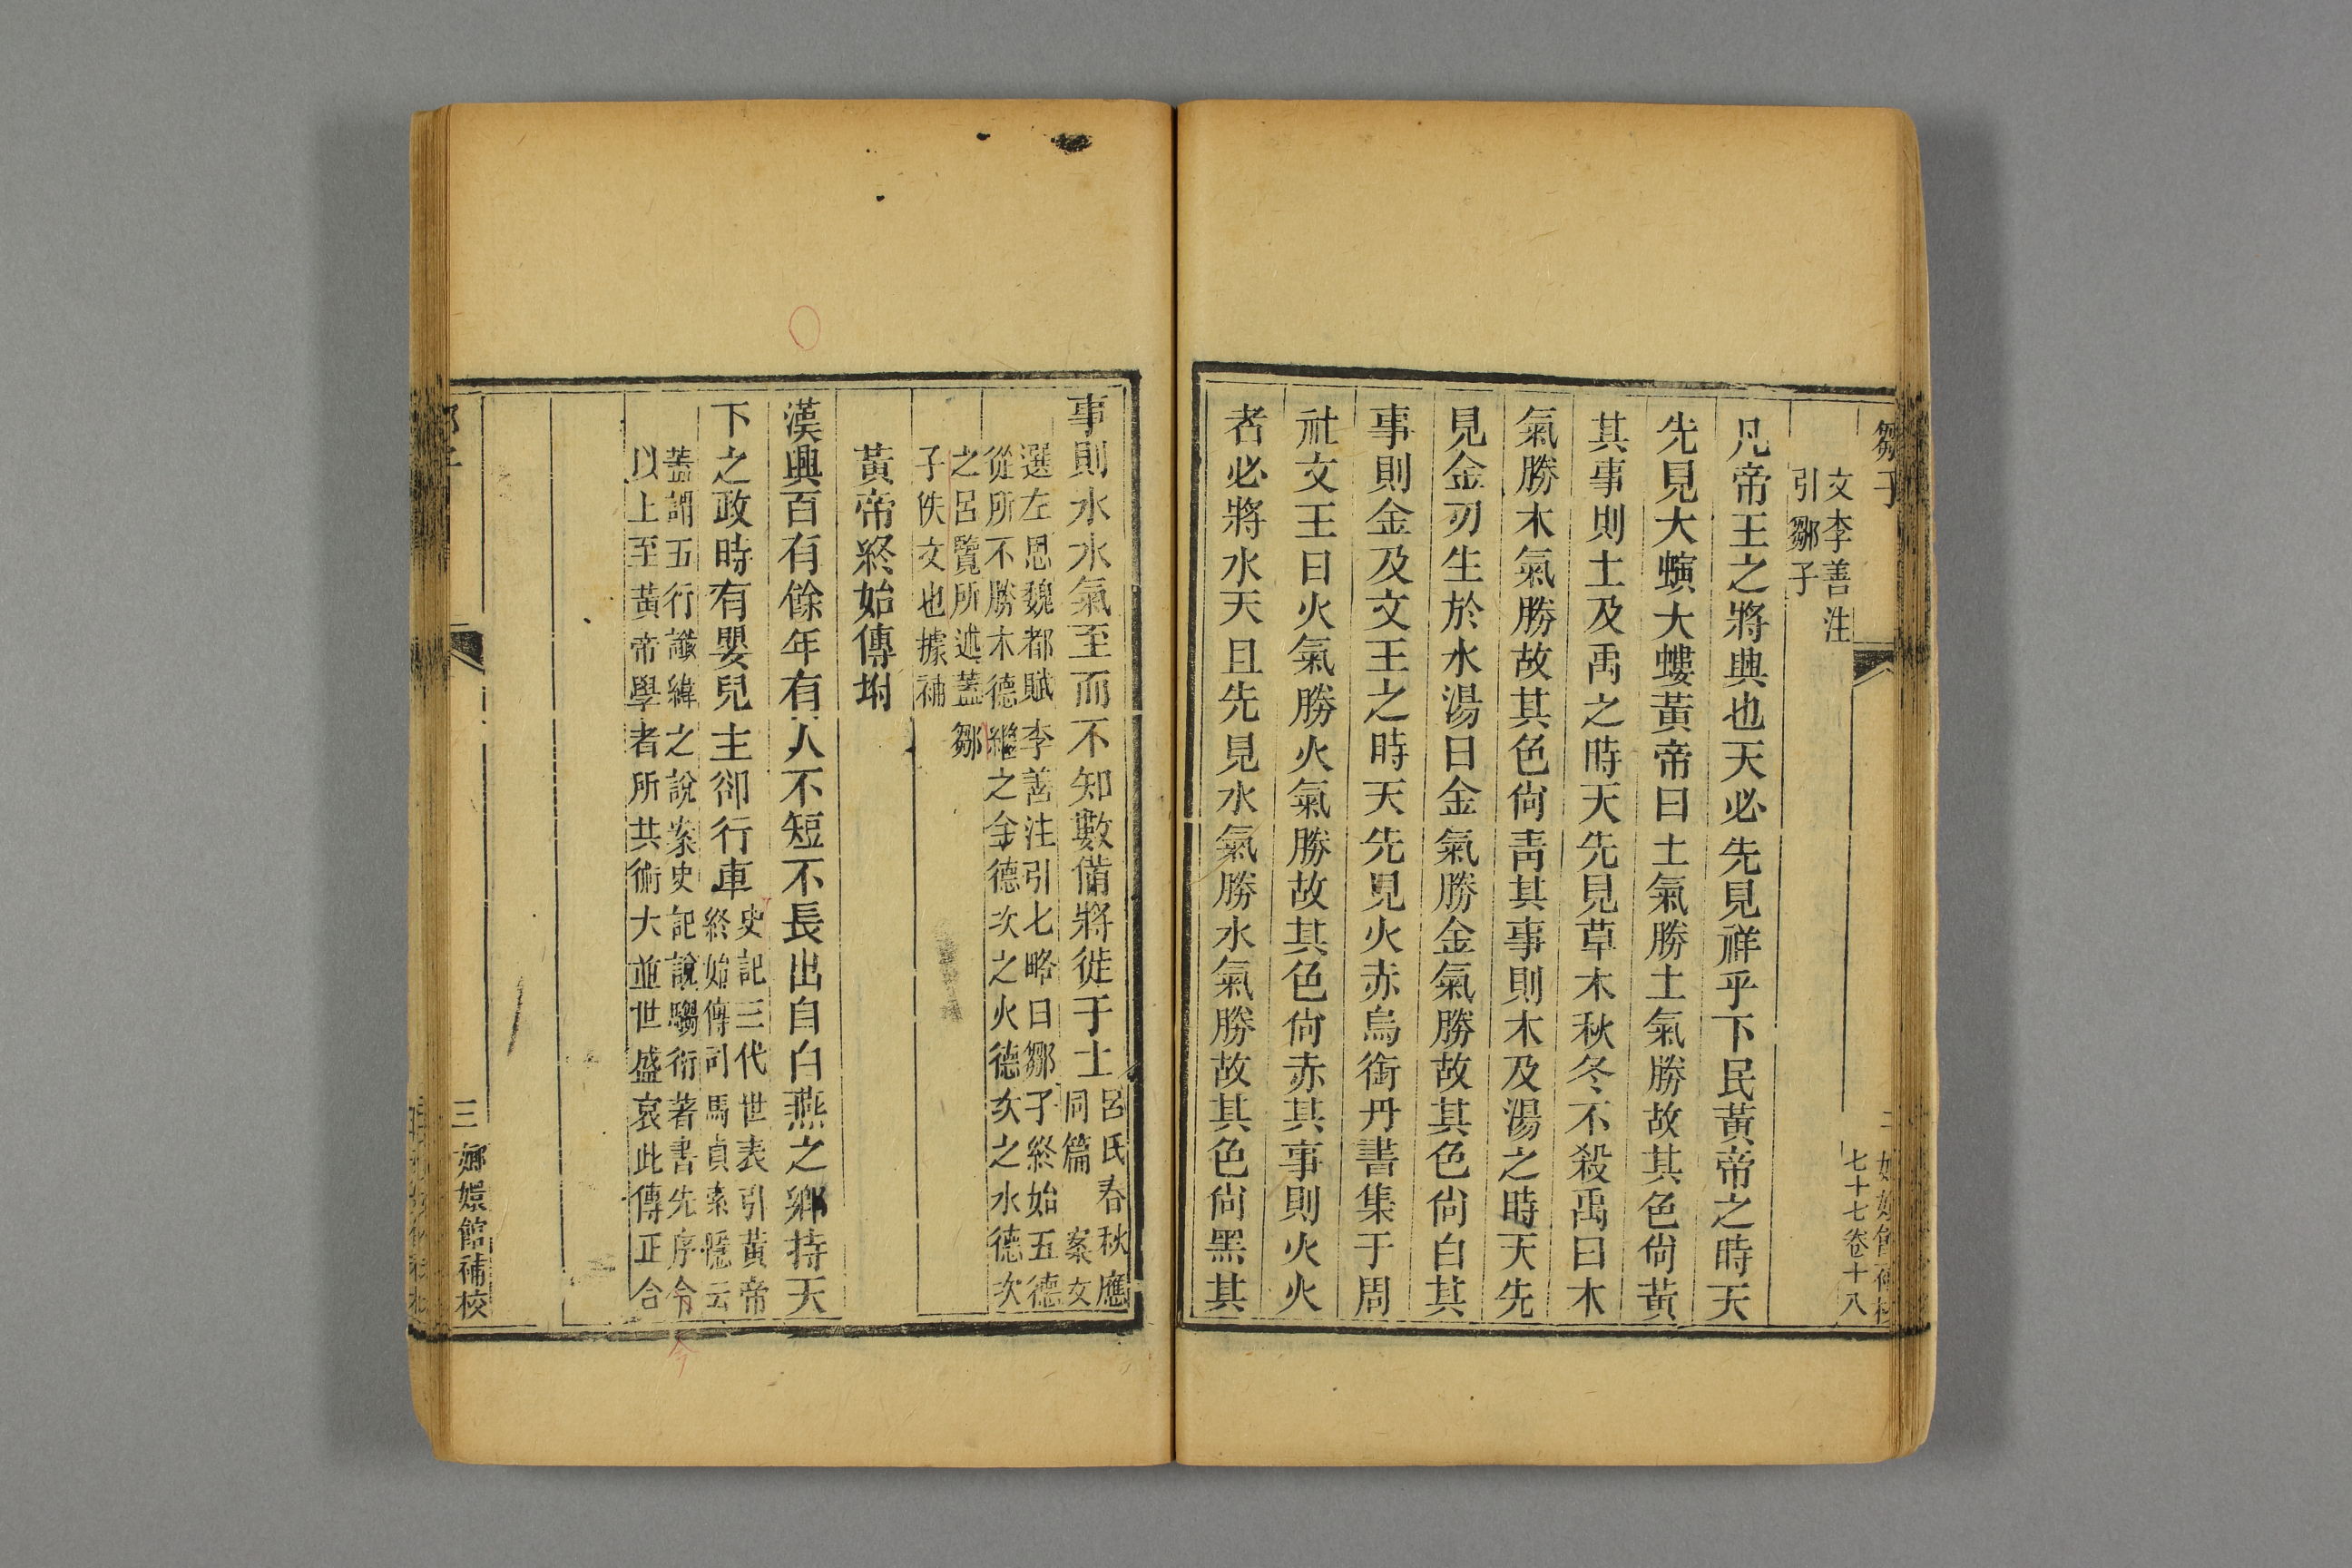 鄒子
七十七卷十八
文李善注
引鄒子
凡帝王之將興也天必先見祥乎下民黃帝之時天
先見大螾大螻黃帝曰土氣勝土氣勝故其色尙黃
其事則土及禹之時天先見草木秋冬不殺禹曰木
氣勝木氣勝故其色尙靑其事則木及湯之時天先
見金刃生於水湯曰金氣勝金氣勝故其色尙白其
事則金及文王之時天先見火赤烏銜丹書集于周
社文王曰火氣勝火氣勝故其色尙赤其事則火火
者必將水天且先見水氣勝水氣勝故其色尙黑其
事則水水氣至而不知數備將徙于土
呂氏春秋應
同篇 案文
選左思魏都賦李善注引七略曰鄒子終始五德
從所不勝木德繼之金德次之火德次之水德次
之呂覽所述蓋鄒
子佚文也據補
黃帝終始傳坿
漢興百有餘年有人不短不長出自白燕之鄉持天
下之政時有嬰兒主卻行車
史記三代世表引黃帝
終始傳司馬貞索隱云
蓋謂五行讖緯之說案史記說騶衍著書先序令
以上至黃帝學者所共術大並世盛衰此傳正合
今
三
嫏嬛館補校